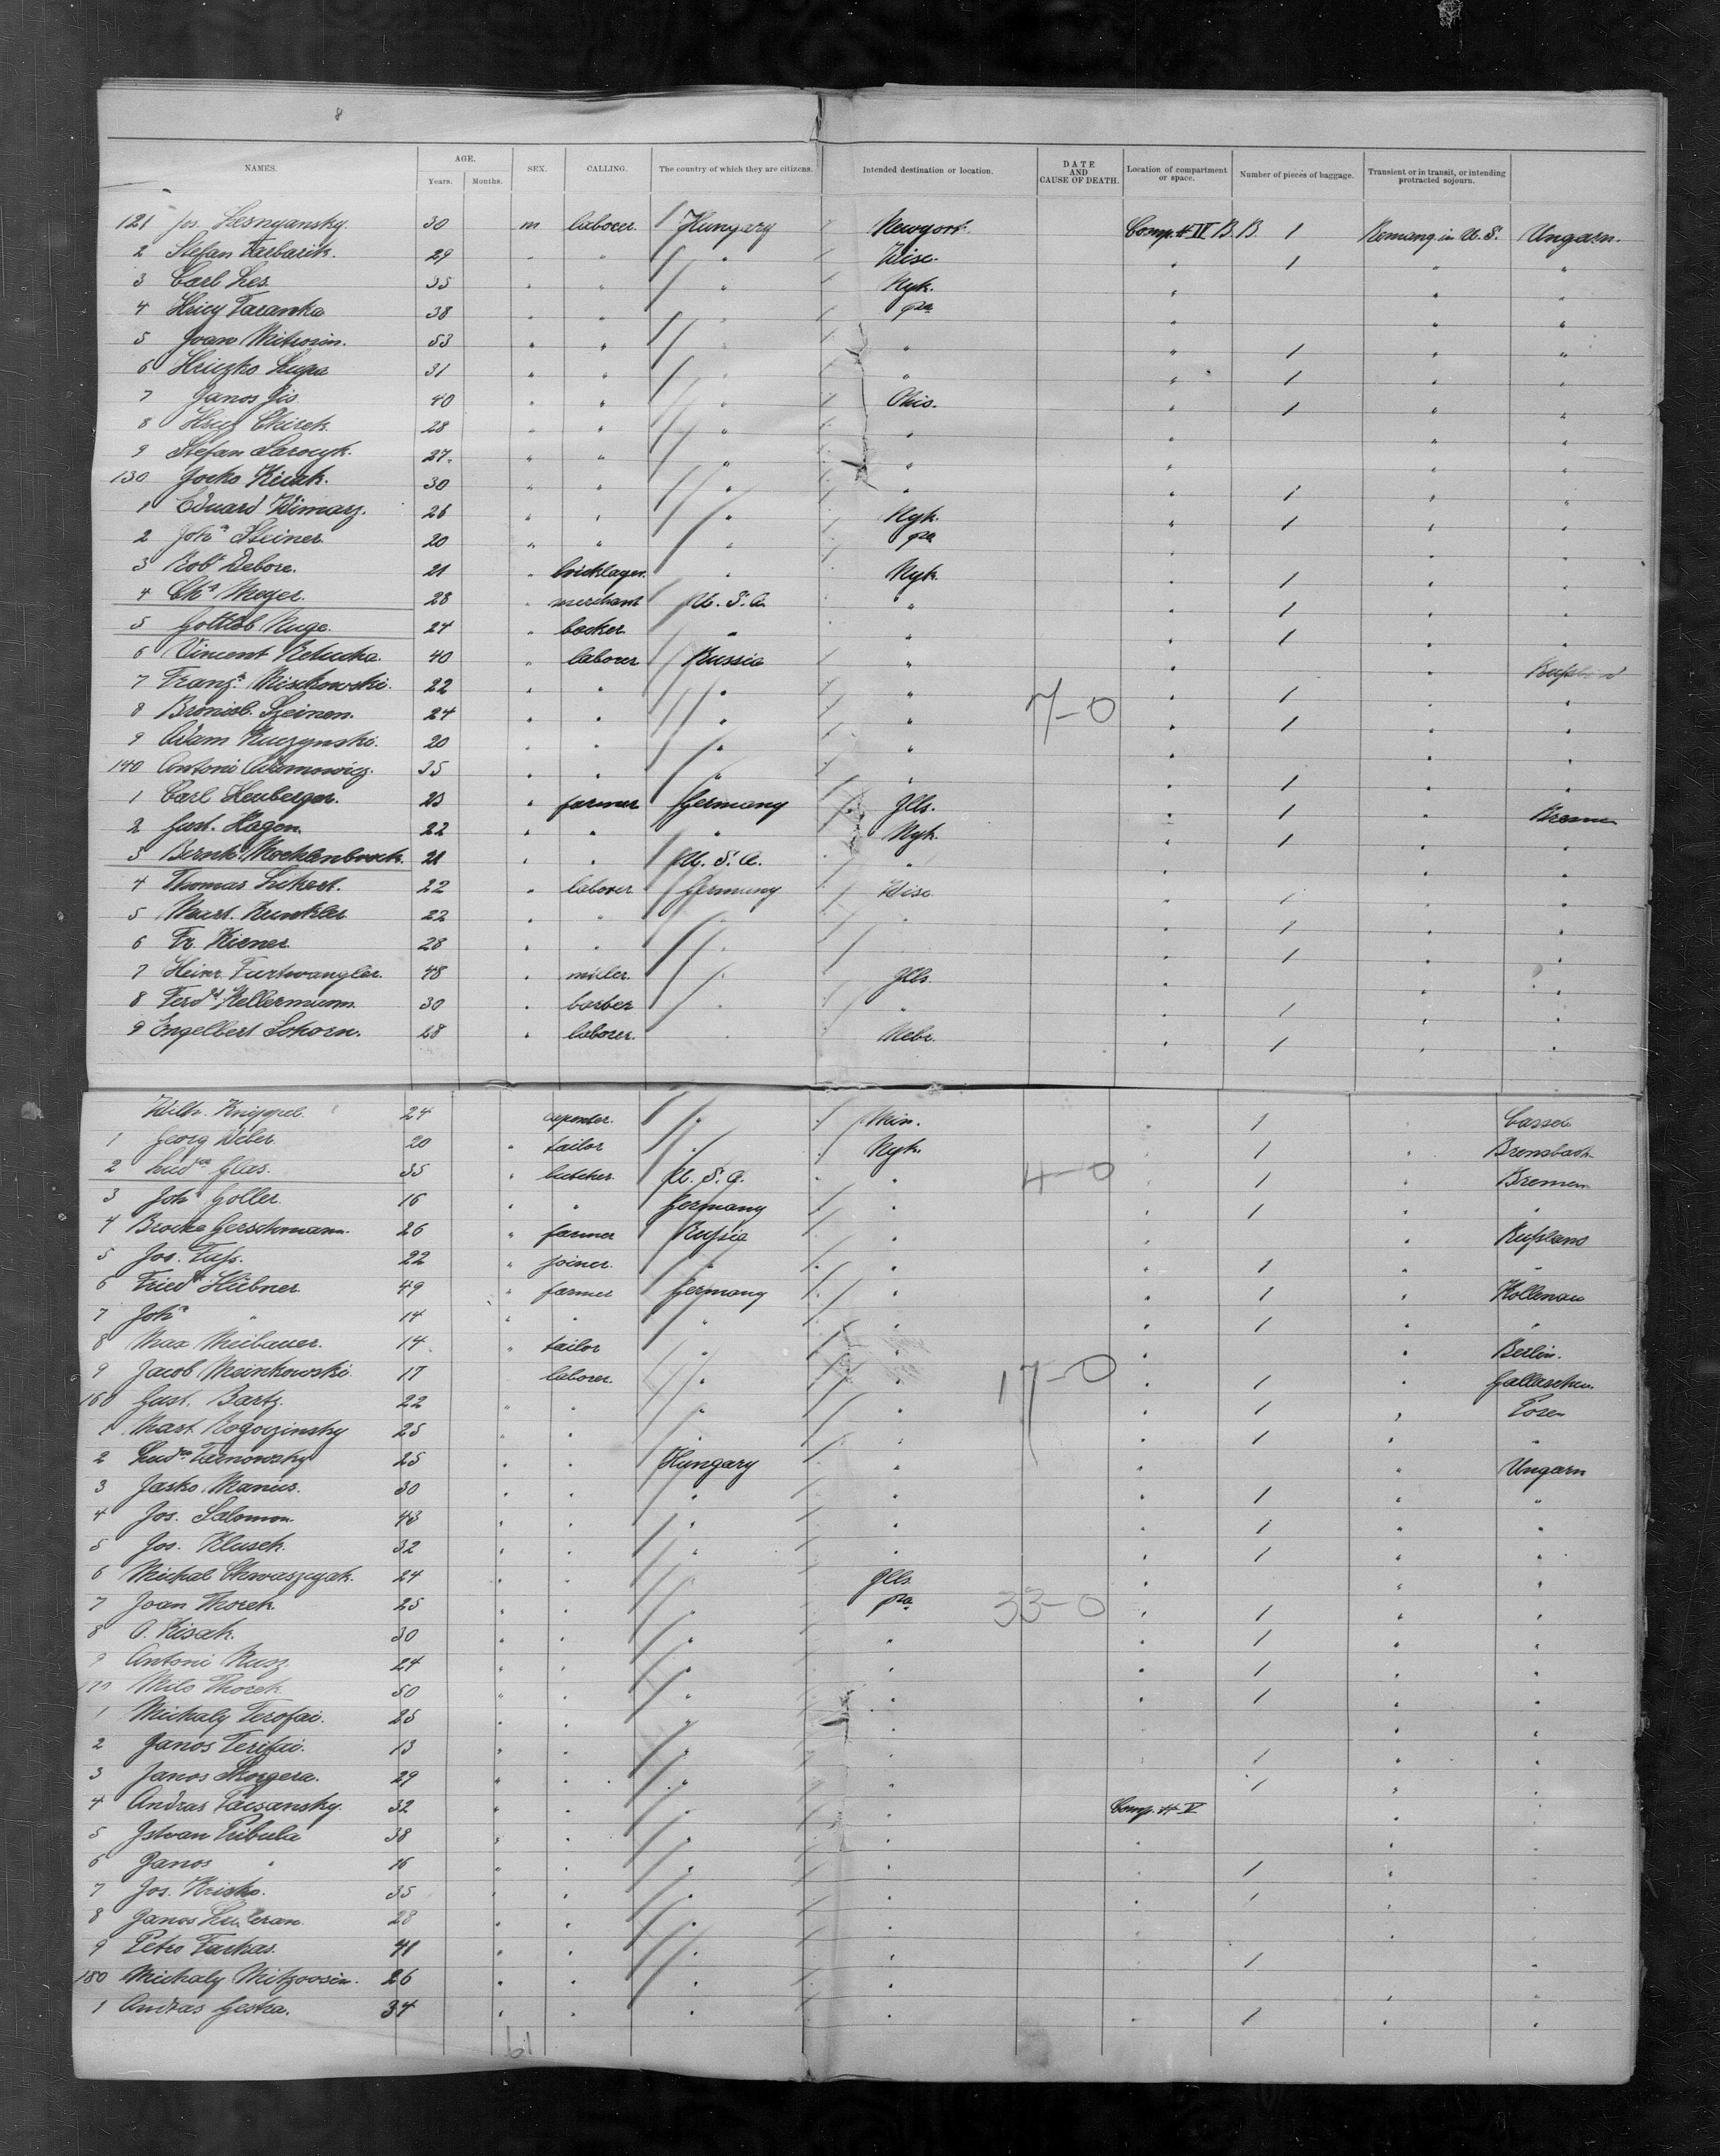 8
NAMES. AGE. Years. Months. SEX. CALLING. The country of which they are citizens. Intended destination or location. DATE AND CAUSE OF DEATH. Location of compartment or space. Number of pieces of baggage. Transient or in transit, or intending protracted sojourn.
121 Jos. Lesnyansky. 30 m laborer Hungary Newyork. Comp. # IV B.B. 1 Remang. in U.S. Ungarn.
2 Stefan Karbarik. 29 " " " Wisc. " 1 " "
3 Carl Les. 35 " " " Nyk. " " "
4 Hricy Taranka 38 " " " pa " " "
5 Joan Mitrovin. 53 " " " " " 1 " "
6 Hriczko Kupa 31 " " " " " 1 " "
7 Janos Jis 40 " " " Ohio. " 1 " "
8 Chirek. 28 " " " " " " "
9 Stefan 27. " " " " " " "
130 Jocko 30 " " " " " 1 " "
1 Eduard Wimarz. 26 " " " Nyk. " 1 " "
2 John Steiner 20 " " " pa " " "
3 Robt Debore. 21 " bricklayer. " Nyk. " 1 " "
4 Chs Meyer. 28 " merchant U.S.A. " " 1 " "
5 Gottlob Ruge. 24 " backer " " " 1 " "
6 Vincent Retucha. 40 " laborer Russia " " " Russland
7 Franz Mischowski. 22 " " " " 7-0 " 1 " "
8 Bronisl. Szeinen. 24 " " " " " 1 " "
9 Adam Kuczynski. 20 " " " " " " "
140 Antoni Adamowicz. 35 " " " " " 1 " "
1 Carl Heuberger. 23 " farmer Germany Ills. " 1 " Bremen
2 Gust. Hagen. 22 " " " Nyk. " 1 " "
3 Bernh. Mochlenbrock. 21 " " U.S.A. " " " "
4 Thomas Lickert. 22 " laborer Germany Wisc " 1 " "
5 Mart. Kunkler 22 " " " " " 1 " "
6 Fr. Kirner. 28 " " " " 1 " "
7 Heinr. Furtwangler. 48 " miller. " Ills. " " "
8 Ferdd Kellermann. 30 " barber " " " 1 " "
9 Engelbert Schorn. 28 " laborer. " Nebr. " 1 " "
Wilh. Knippel. 24 carpenter. " Min. " 1 " Cassel
1 Georg Weber 20 " tailor " Nyk. 1 " Brensbach
2 Ludw. Glas. 35 " butcher. U.S.A. " 4-0 " 1 " Bremen
3 Joh. Goller. 16 " " Germany " " 1 " "
4 Brocke Gerschmann. 26 " farmer Russia " " " Russland
5 Jos. Tuss. 22 " joiner. " " " 1 " "
6 Friedr Hübner. 49 " farmer Germany " " 1 " Kollenau
7 John " 14 " " " " " 1 " "
8 Max Meibauer. 14. " tailor " " " " Berlin.
9 Jacob Meinkowski 17 laborer. " " 17-0 " 1 " Gallaschen.
160 Gust. Bartz. 22 " " " " " 1 " Posen
1 Mart. Rogoczinsky 25 " " " " 1 " "
2 Ludw. Tarnowsky 25 " " Hungary " " " Ungarn
3 Jasko Manius. 30 " " " " 1 " "
4 Jos. Salomon. 43 " " " " " 1 " "
5 Jos. Klusch. 32 " " " " " 1 " "
6 Michal Chwaszcyak. 24 " " " Ills. " " "
7 Joan Thorek. 25 " " " pa 33-0 " 1 " "
8 A. Kisak. 30 " " " " 1 " "
9 Antoni Rusz 24 " " " " " 1 " "
Milo Thorek. 50 " " " " " 1 " "
1 Michaly Terofai. 25 " " " " " "
2 Janos Terifai. 13 " " " " 1 " "
3 Janos 29 " " " " 1 " "
4 Andras 32 " " " " Comp. # V "
5 Istvan Tribula 38 " " " " " "
6 Janos " 16 " " " " 1 "
7 Jos. Hrisko. 35 " " " " 1
8 Janos 28 " " " "
9 Petro Farkas. 41 " " " " 1
180 Michaly Mitzoosin. 26 " " " "
1 Andras Gestra. 34 " " " " " 1 " "
61